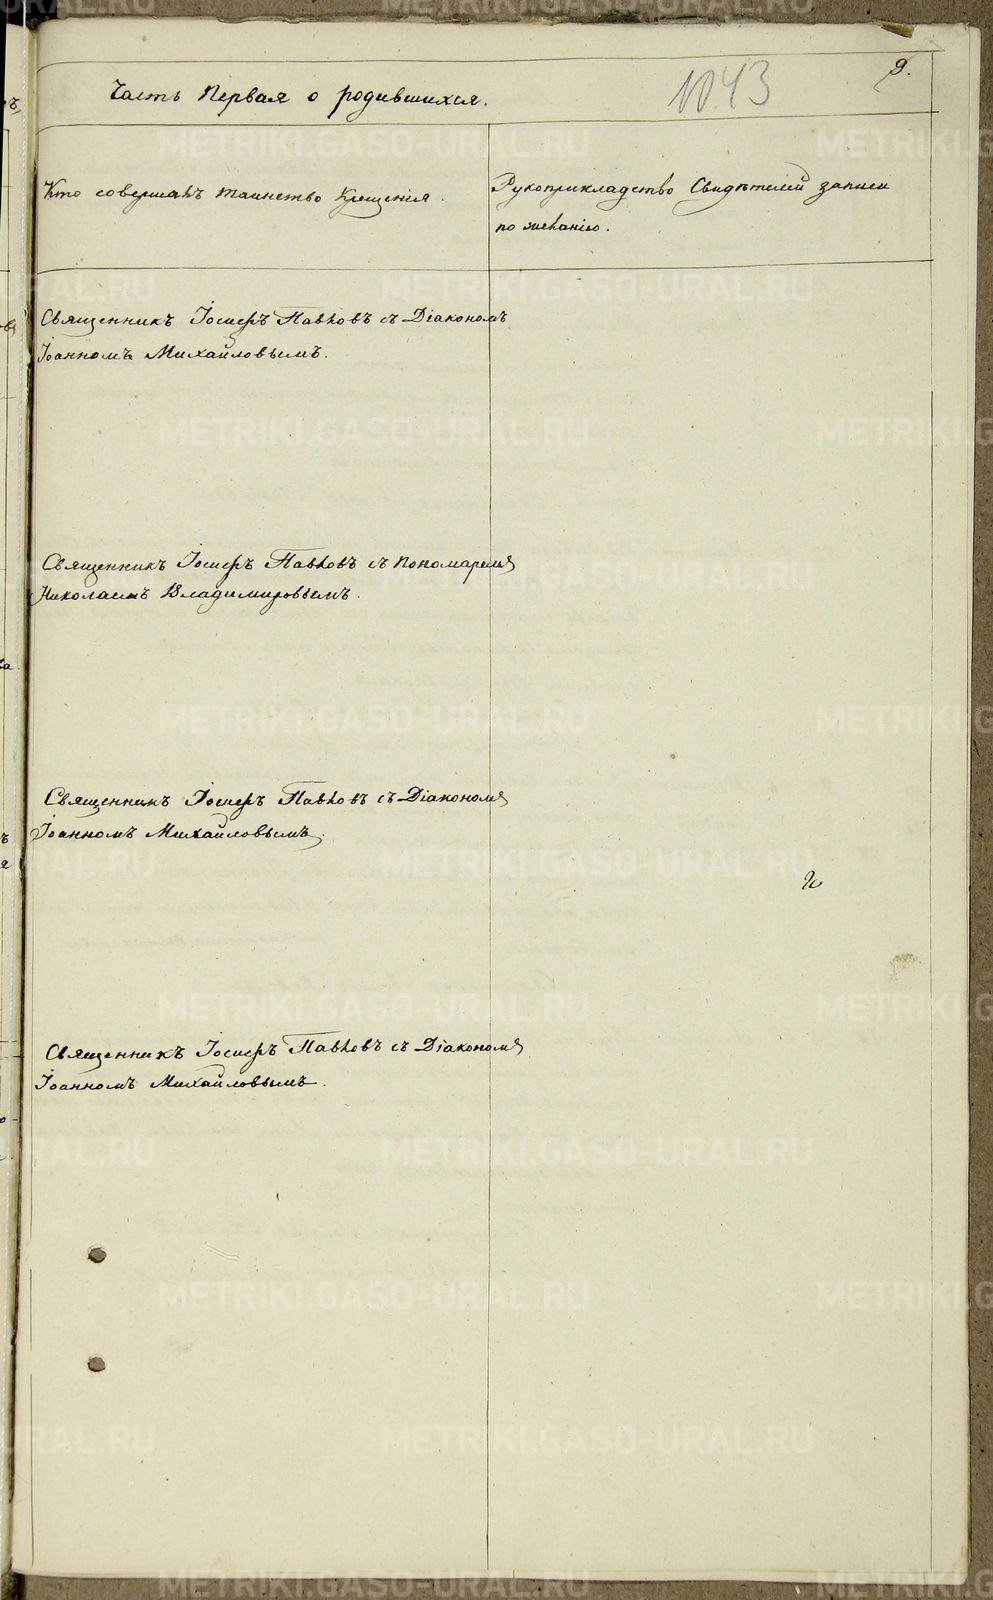 9.
Часть Первая о родившихся.
1043
Кто совершалъ таинство Крещенія.
Рукоприкладство Свидѣтелей записи
по желанію.
Священникъ Іосифъ Павловъ съ Діакономъ
Іоанномъ Михайловымъ.
Священникъ Іосифъ Павловъ съ Пономаремъ
Николаемъ Владимировымъ.
Священникъ Іосифъ Павловъ съ Діакономъ
Іоанномъ Михайловымъ.
Священникъ Іосифъ Павловъ съ Діакономъ
Іоанномъ Михайловымъ.
METRIKI.GASO-URAL.RU